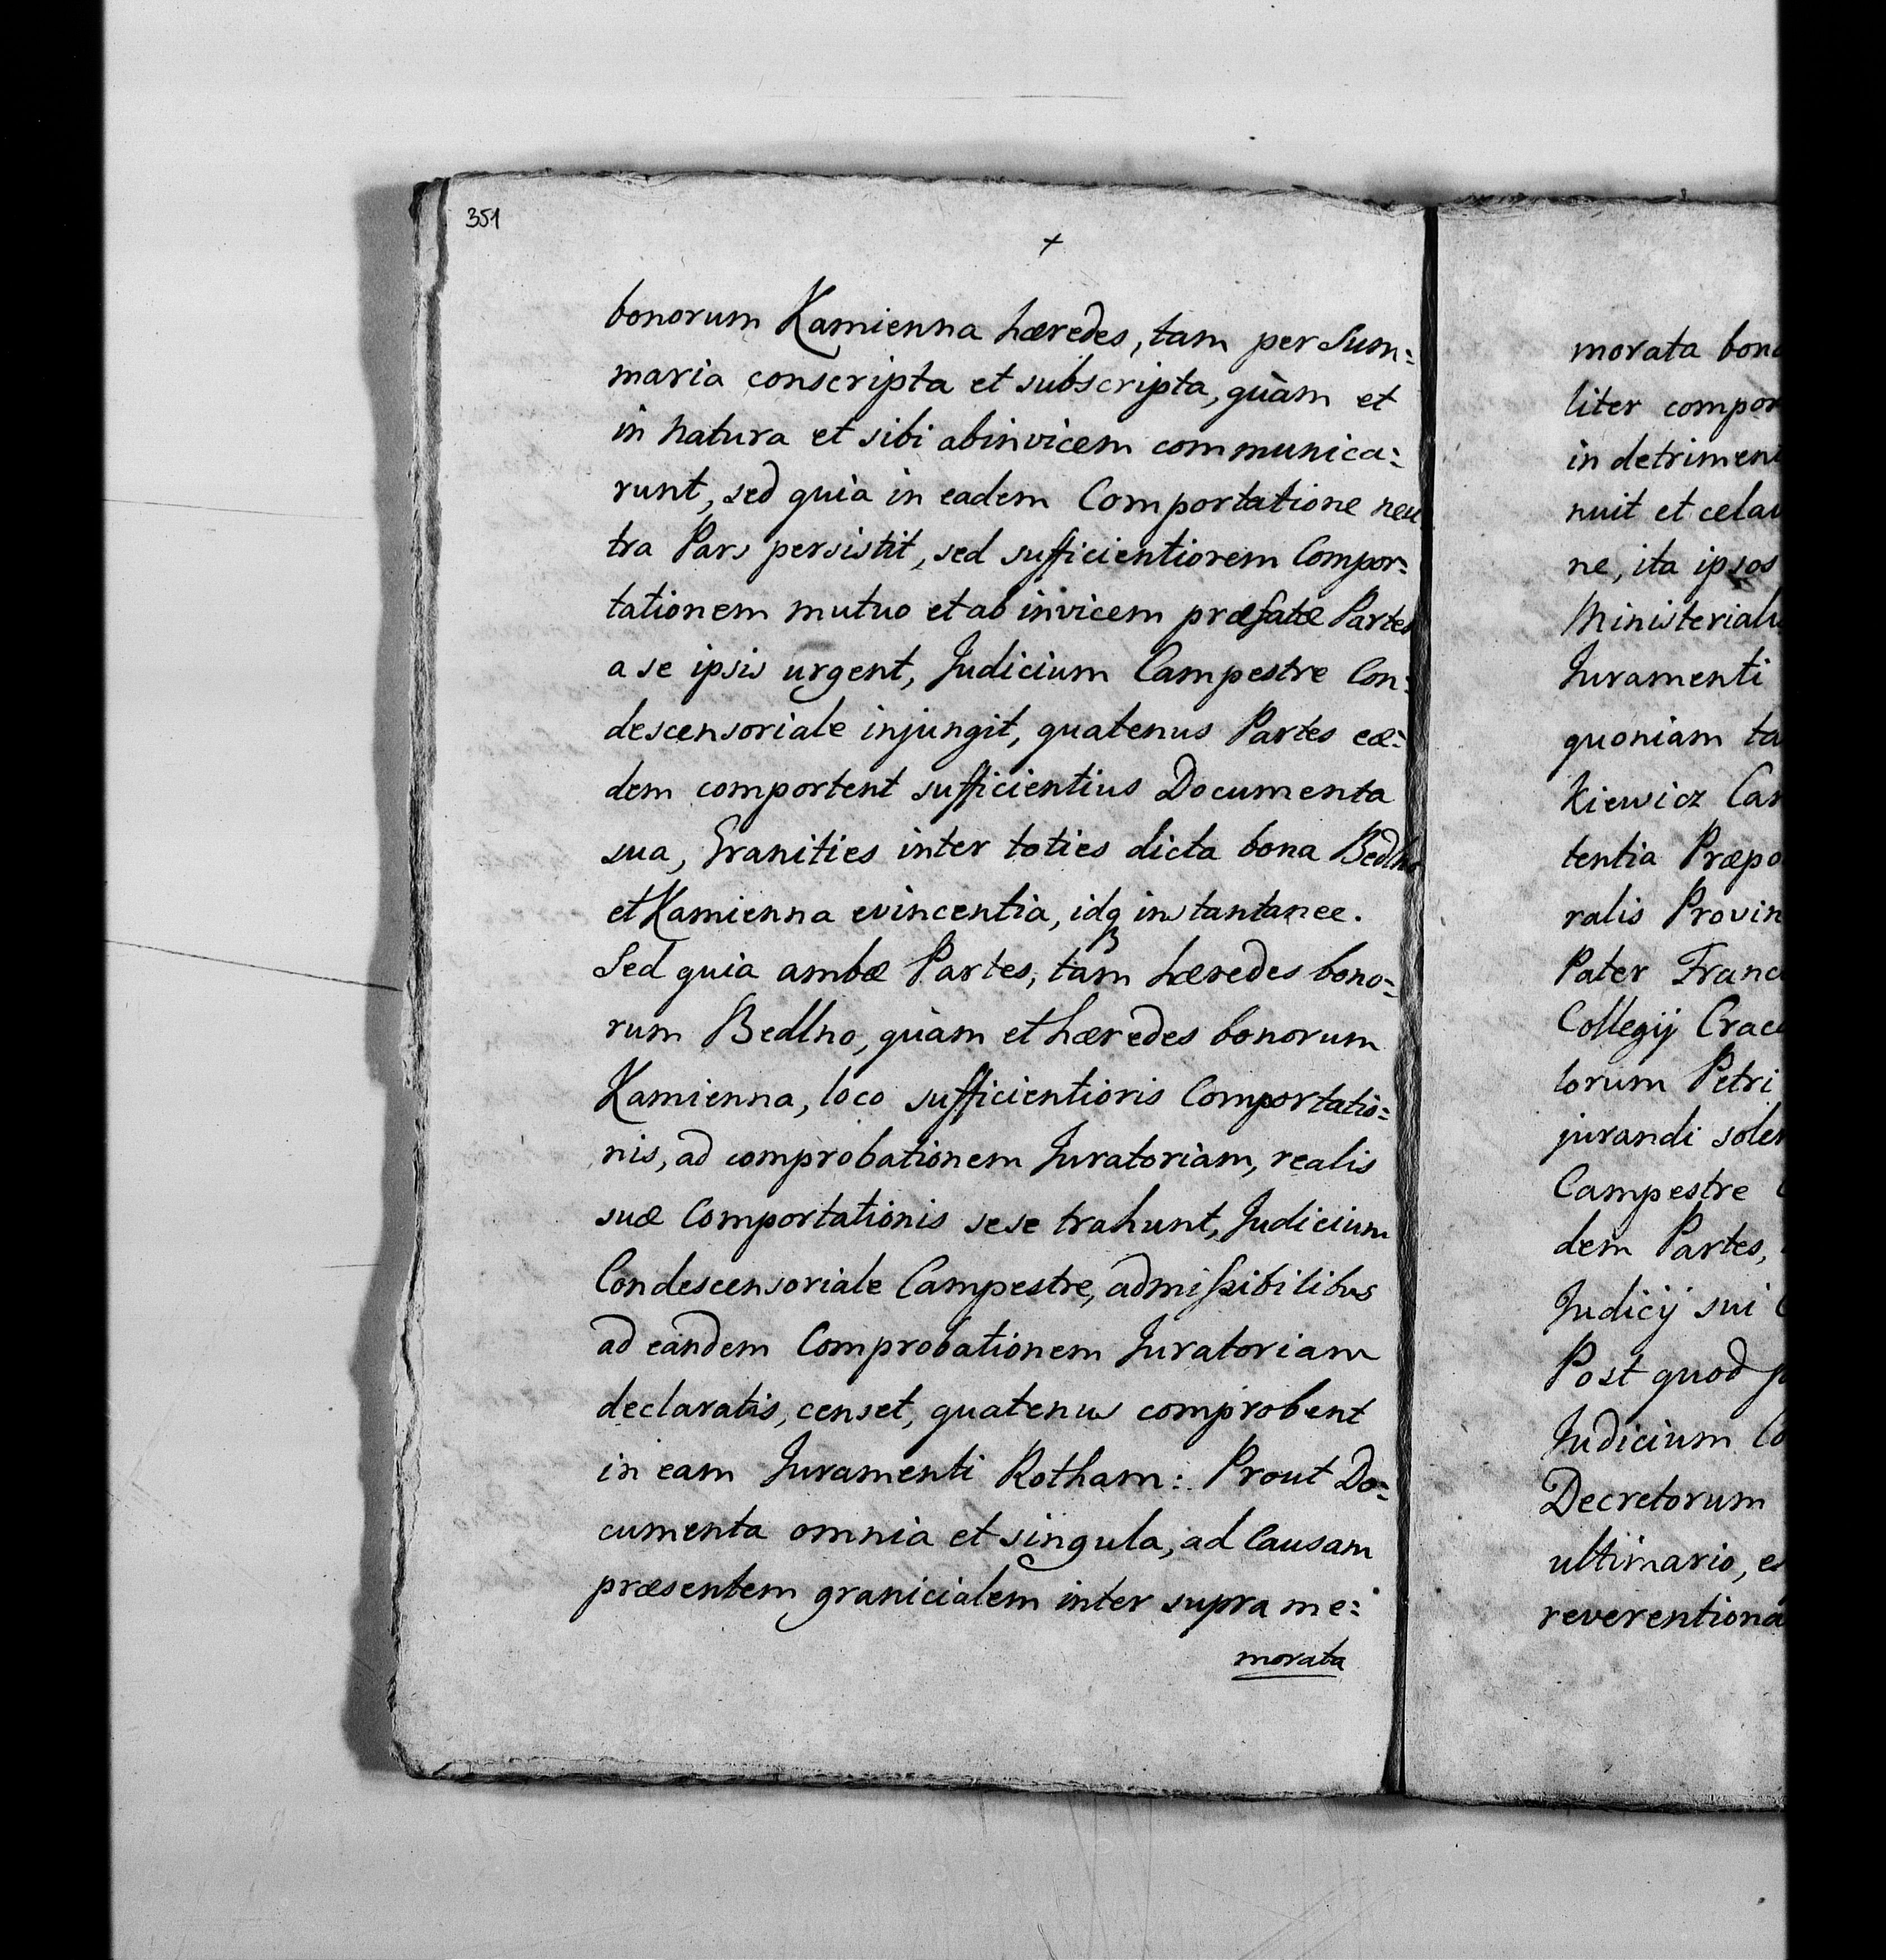 351
+
bonorum Kamienna hæredes, tam per Sum:
maria conscripta et subscripta, quàm et
in natura et sibi abinvicem communica:
runt, sed quia in eadem Comportatione neu
tra Pars persistit, sed sufficientiorem Compor:
tationem mutuo et ab invicem præfatæ Partes
a se ipsis urgent, Judicium Campestre Con:
descensoriale injungit, quatenus Partes eæ:
dem comportent sufficientius Documenta
sua, Granities inter toties dicta bona Bedlno
et Kamienna evincentia, idq₃ instantanee.
Sed quia ambæ Partes, tam hæredes bono:
rum Bedlno, quàm et hæredes bonorum
Kamienna, loco sufficientioris Comportatio:
nis, ad comprobationem Juratoriam, realis
suæ Comportationis sese trahunt, Judicium
Condescensoriale Campestre, admissibilibus
ad eandem Comprobationem Juratoriam
declaratis, censet, quatenus comprobent
in eam Juramenti Rotham: Prout Do:
cumenta omnia et singula, ad Causam
præsentem granicialem inter supra me:
morata
morata bono
liter compor
in detriment
nuit et celav
ne, ita ipsos
Ministeriali
Juramenti
quoniam ta
Kiewicz Can
tentia Præpo
ralis Provin
Pater Franc
Collegij Crac
lorum Petri
jurandi solen
Campestre C
dem Partes,
Judicij sui C
Post quod p
Judicium Co
Decretorum
ultimario, e
reverentiona